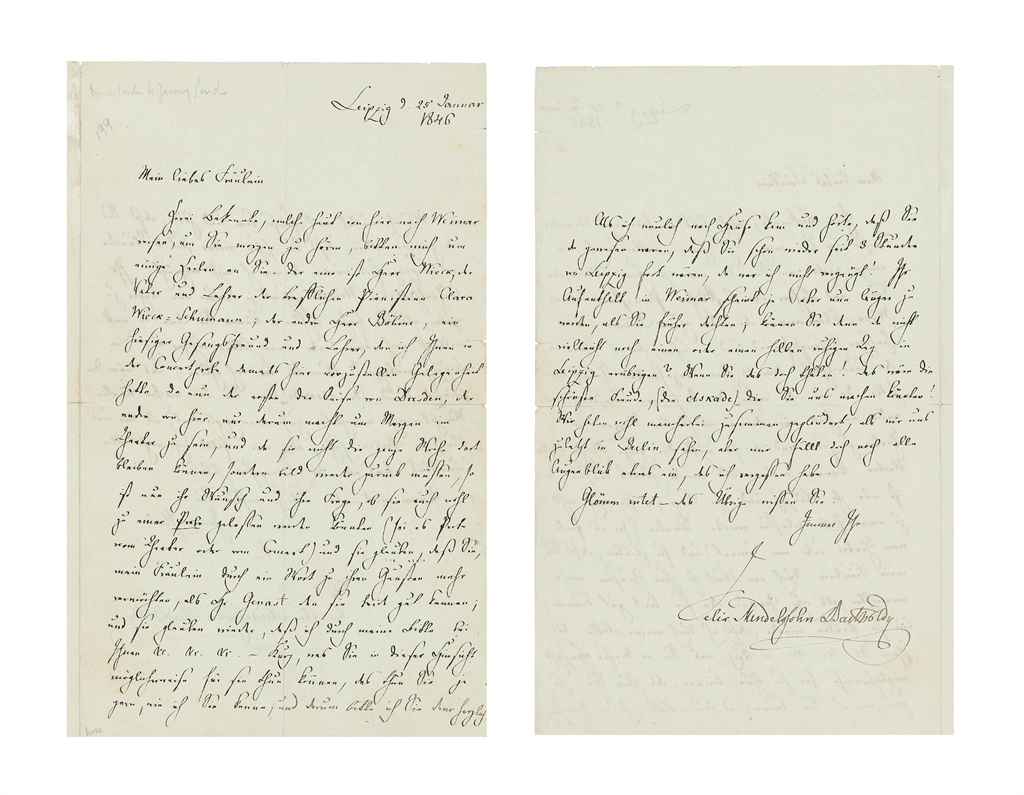 Leipzig d. 25 Januar
1846
Mein liebes Fräulein
Zwei Bekannte, welche heut von hier nach Weimar
reisen, um Sie morgen zu hören, bitten mich um
einige Zeilen an Sie. Der eine ist Herr Wieck, der
Vater und Lehrer der trefflichen Pianistin Clara
Wieck-Schumann; der andre Herr Böhme, ein
hiesiger Gesangsfreund und -Lehrer, den ich Ihnen in
der Concertprobe damals hier vorzustellen Gelegenheit
hatte. Da nun der erste der Reise von Dresden, der
andre von hier nur darum macht um Morgen im
Theater zu sein, und da sie nicht die ganze Woche dort
bleiben können, sondern bald wieder zurück müssen, so
ist nun ihr Wunsch und ihre Frage, ob sie auch wohl
zu einer Probe gelassen werden könnten (sei es Probe
vom Theater oder vom Concert) und sie glauben, daß Sie,
mein Fräulein durch ein Wort zu ihren Gunsten mehr
vermöchten, als Hr. Genast den sie beide gut kennen;
und sie glauben wieder, daß ich durch meine Bitte bei
Ihnen &c. &c. &c. – Kurz, was Sie in dieser Hinsicht
möglicherweise für sie thun können, das thun Sie ja
gern, wie ich Sie kenne, und darum bitte ich Sie denn herzlich
Als ich neulich nach Hause kam und hörte, daß Sie
da gewesen waren, daß Sie schon wieder seit 3 Stunden
von Leipzig fort wären, da war ich nicht vergnügt! Ihr
Aufenthalt in Weimar scheint ja aber nun länger zu
werden, als Sie früher dachten; können Sie denn da nicht
vielleicht noch einen oder einen halben ruhigen Tag in
Leipzig erübrigen? Wenn Sie das doch thäten! Das wäre die
schönste Freude, (die) die Sie uns machen könnten!
Wir haben wohl mancherlei zusammen geplaudert, als wir uns
zuletzt in Berlin sahen, aber mir fällt doch noch alle
Augenblick etwas ein, das ich vergessen habe.
Glömm intet – das Übrige wissen Sie
Immer Ihr
Felix Mendelssohn Bartholdy